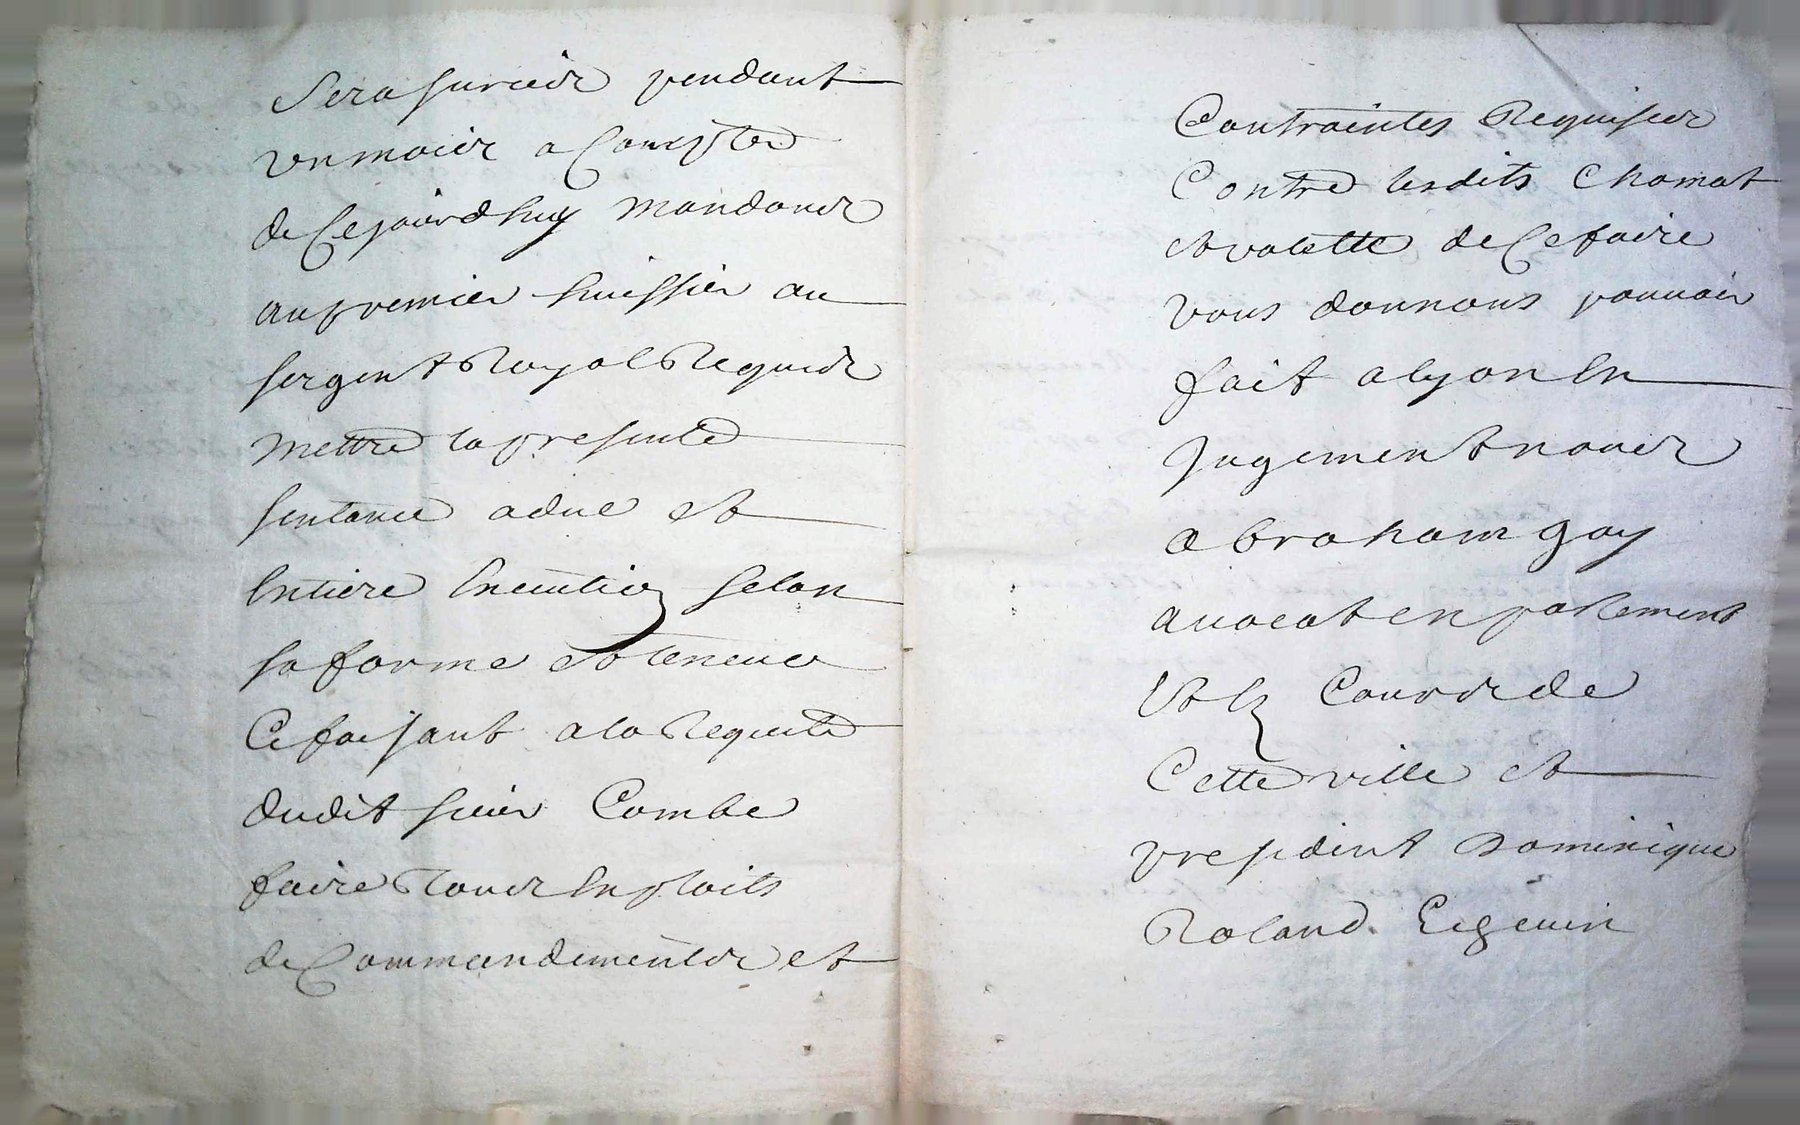 Sera surcÿs pendant
un mois a Compter
de Cejourdhuy Mandons
au premier huissier ou
sergent Royal Requis
Mettre la presente
sentance a due et
Entiere Execution selon
sa forme et teneur
Ce faisant a la Requete
dudit sieur Combe
faire tous Exploits
de Commandements et
Contraintes Requises
Contre lesdits Chomat
et valette de Ce faire
vous donnons pouvoir
fait a lyon En
Jugement nous
abraham goy
avocat en parlement
Et Es Cours de
Cette ville et
president Dominique
Roland